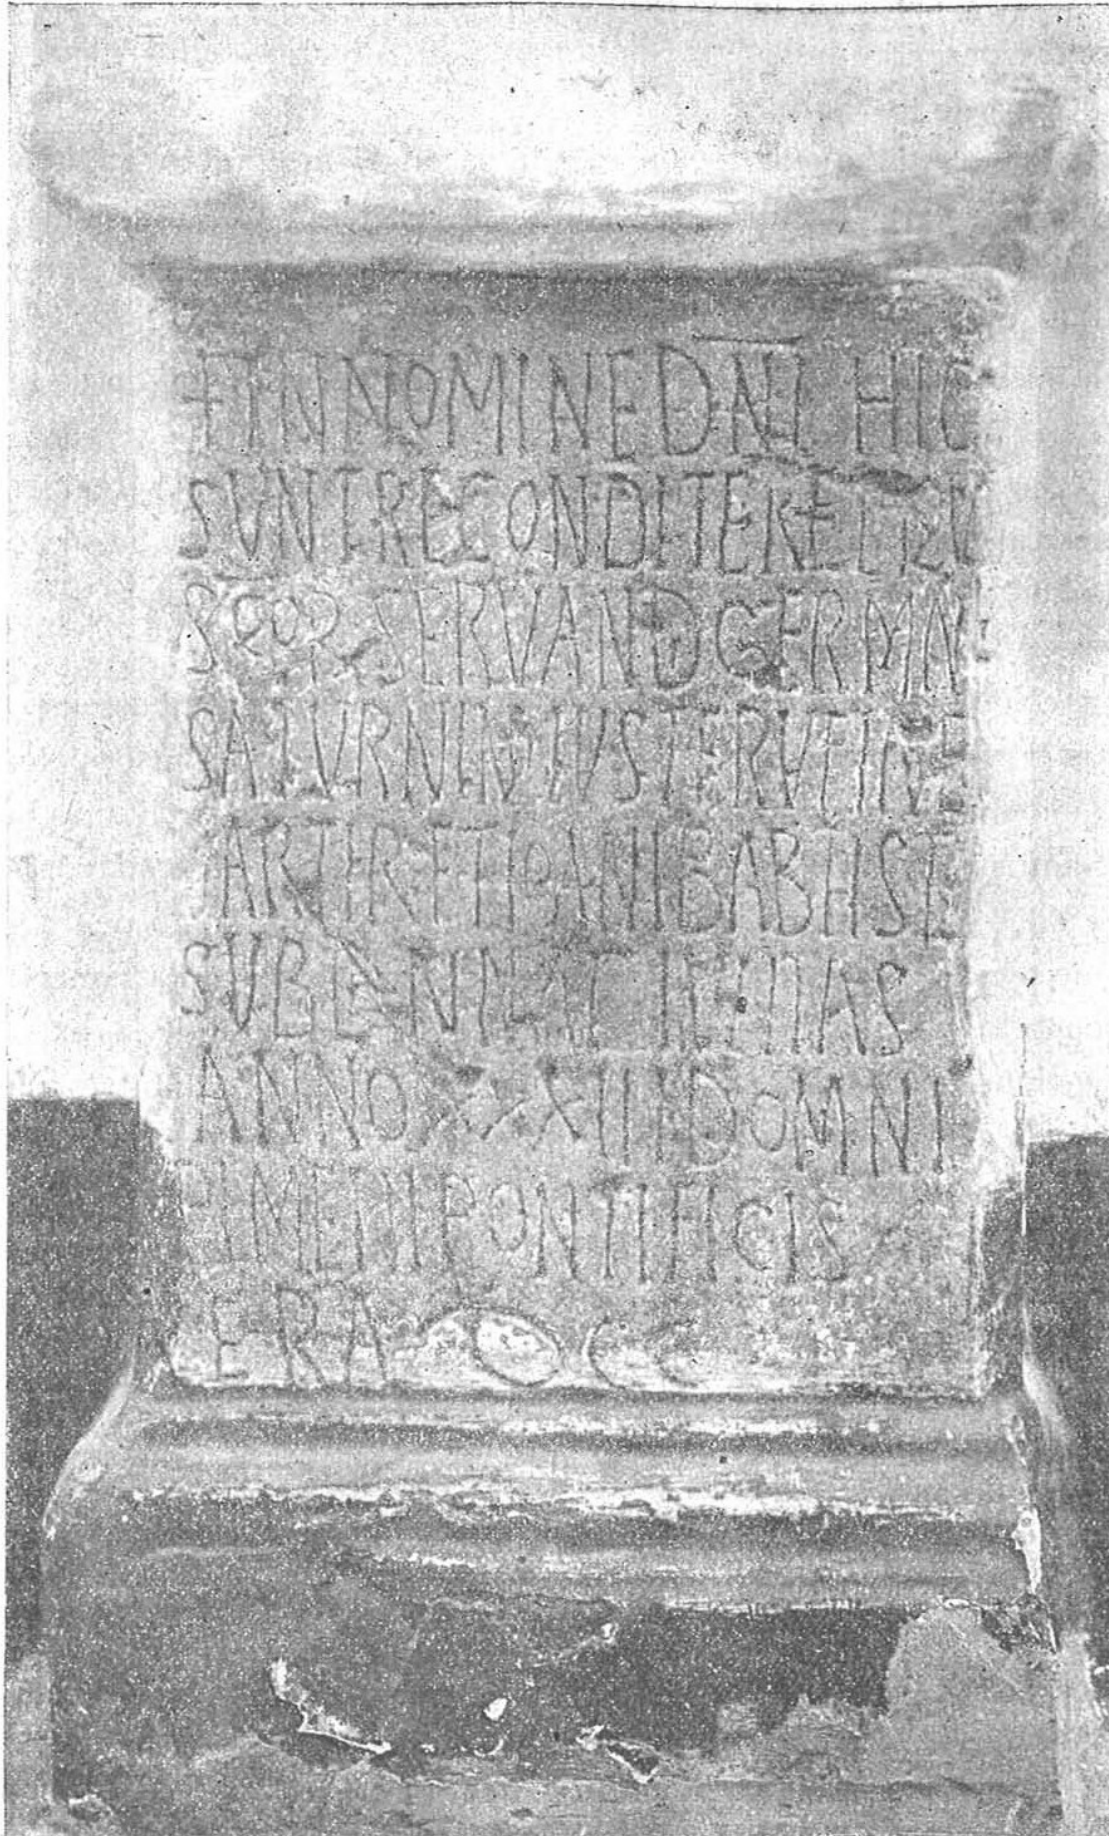 + IN NOMINE DNI HIC
SUNT RECONDITE RELIQU
SCOR SERVAND GERMAN
SATURNIN IUSTE RUFINE
MARTIR ET IOANNI BABTISTE
SUB KALENDAS
ANNO XXXIII DOMNI
PIMENI PONTIFICIS
ERA DCC